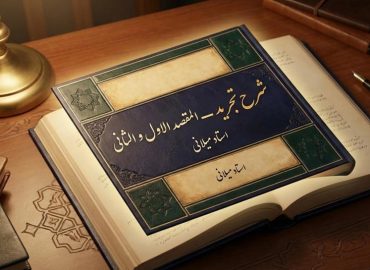 شرح تجرید – المقصد الاول و الثانی
استاد میلانی
استاد میلانی